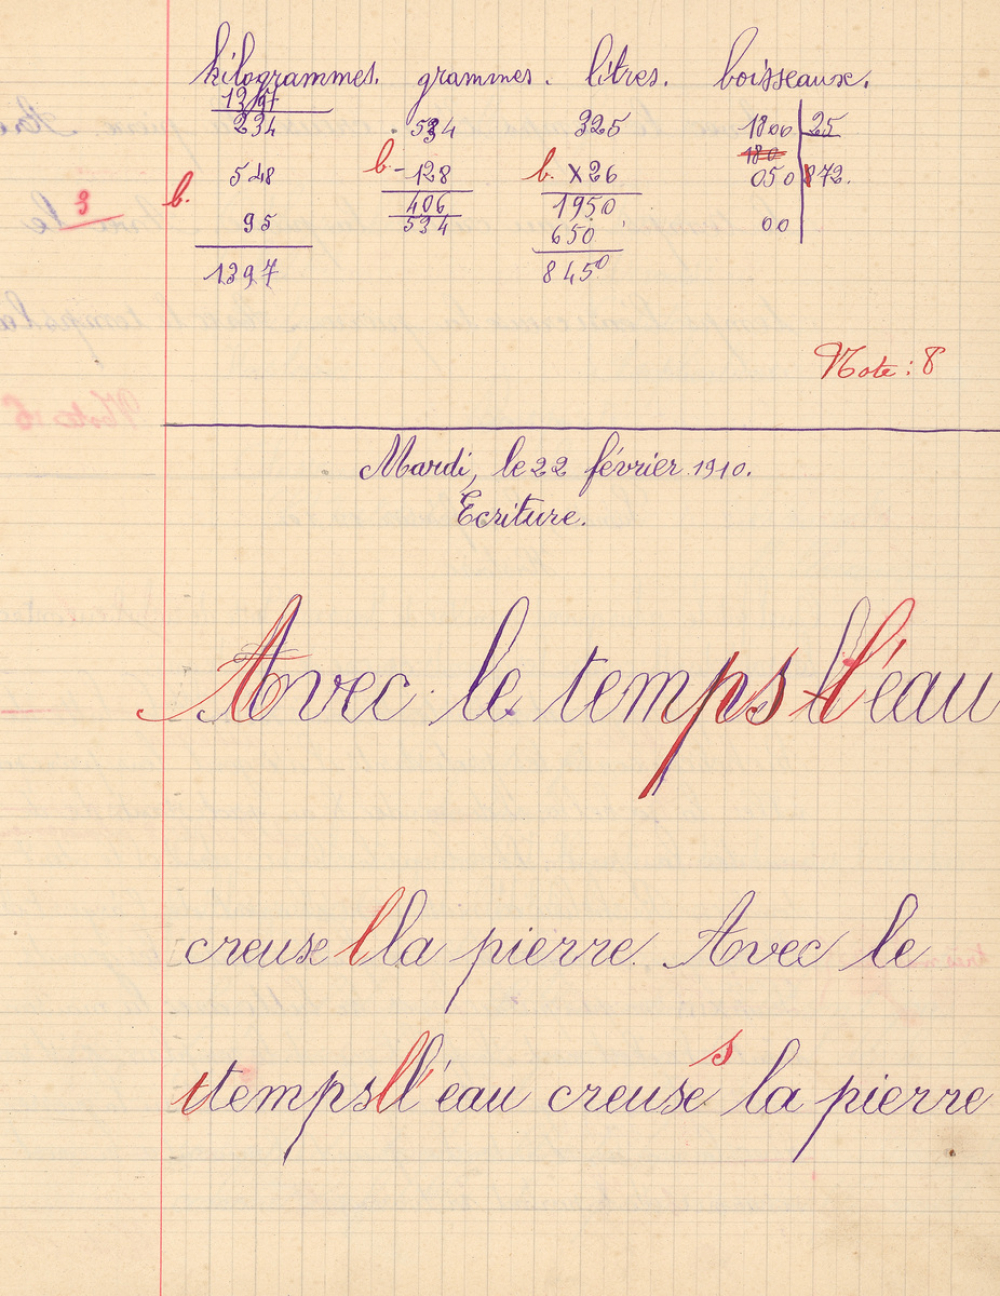 kilogrammes. grammes. litres. boisseaux.
1397
234 . 534 325 1800 25
180
548 b. - 128 b. X 26 050 872.
b. 406 1950
3
95 534 650 00
1397 8450
Note : 8
Mardi, le 22 février 1910.
Ecriture.
Avec le temps l'eau
creuse l la pierre. Avec le
t temps l l'eau creuse s la pierre